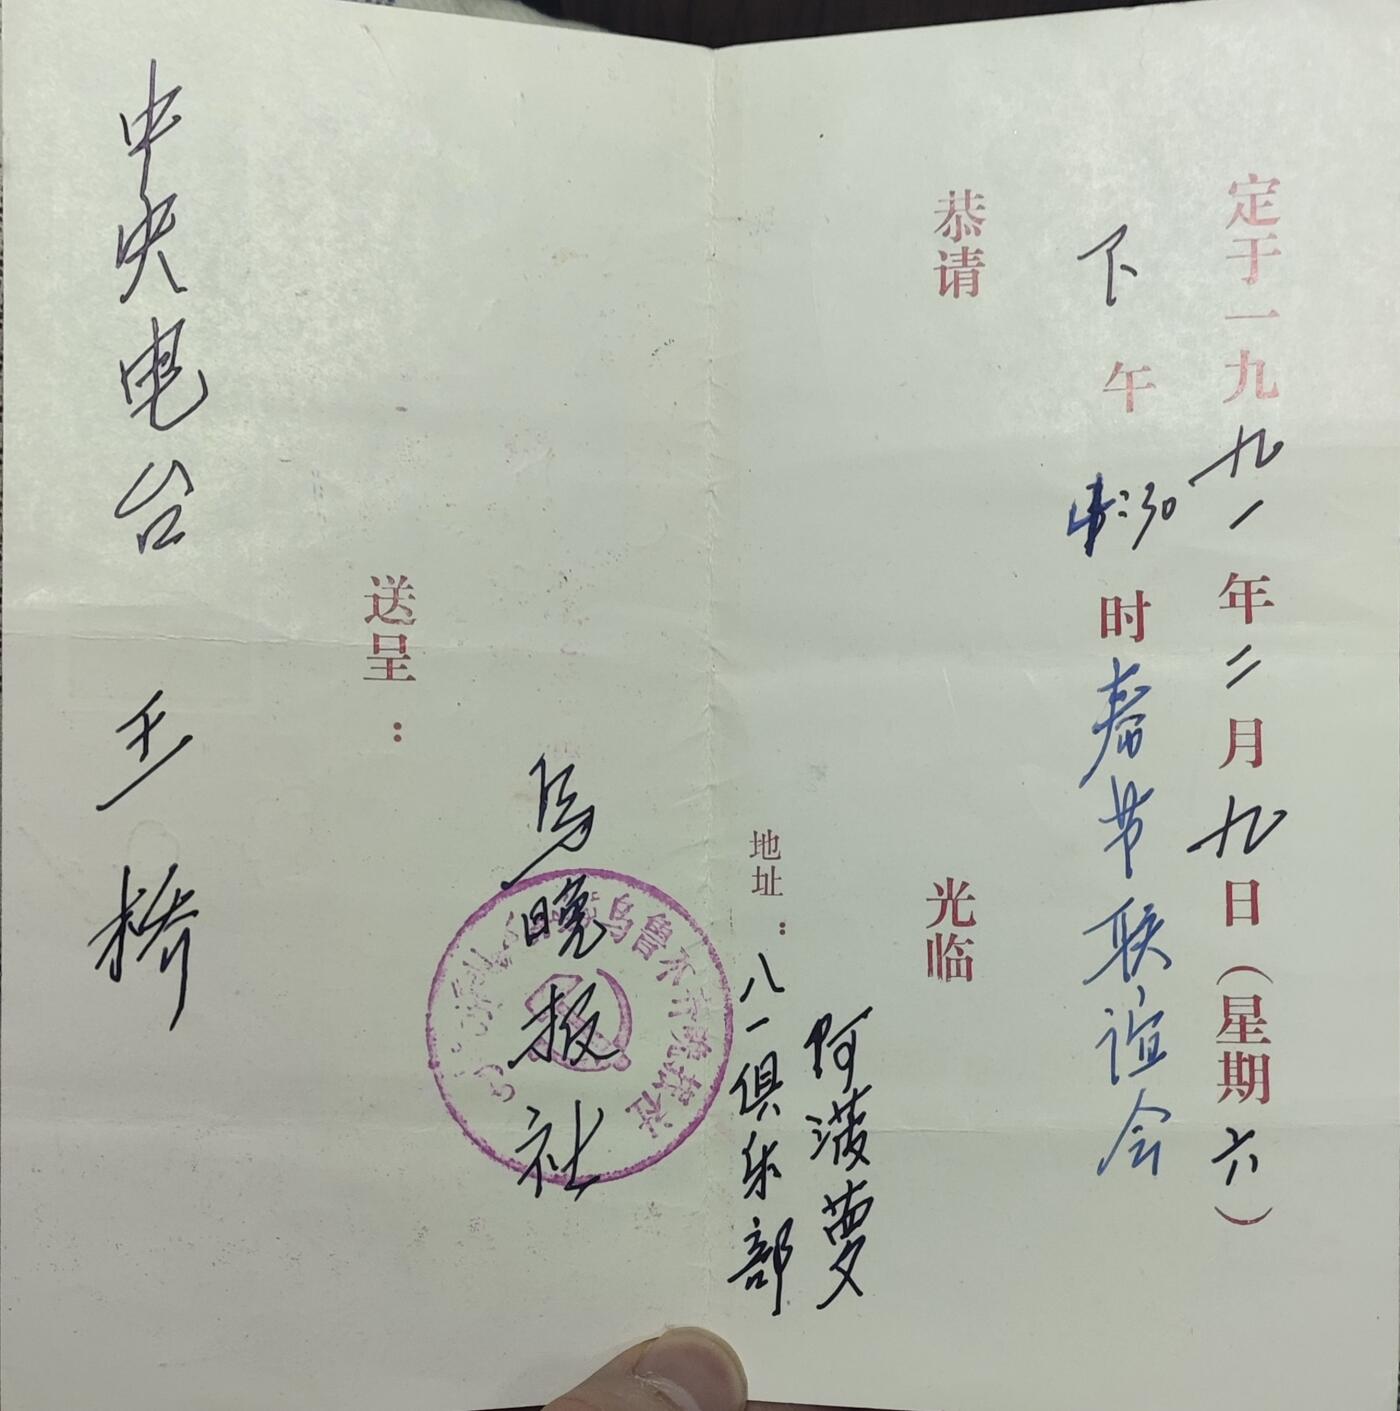 定于一九九一年二月九日（星期六）
下午4:30时春节联谊会
恭请
光临
阿菠萝
地址：八一俱乐部
乌晚报社
乌鲁木齐晚报社
送呈：
中央电台 王桥